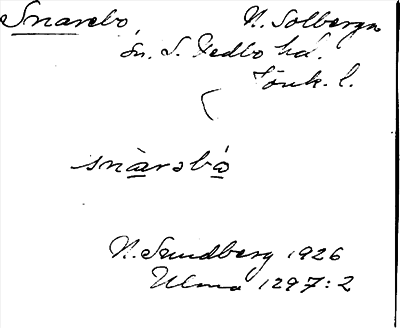 Snarebo, N. Solberga
sn. S. Hedbo hd.
Jönk. l.
snàrəbó
N. Sundberg 1926
Ulma 1297:2